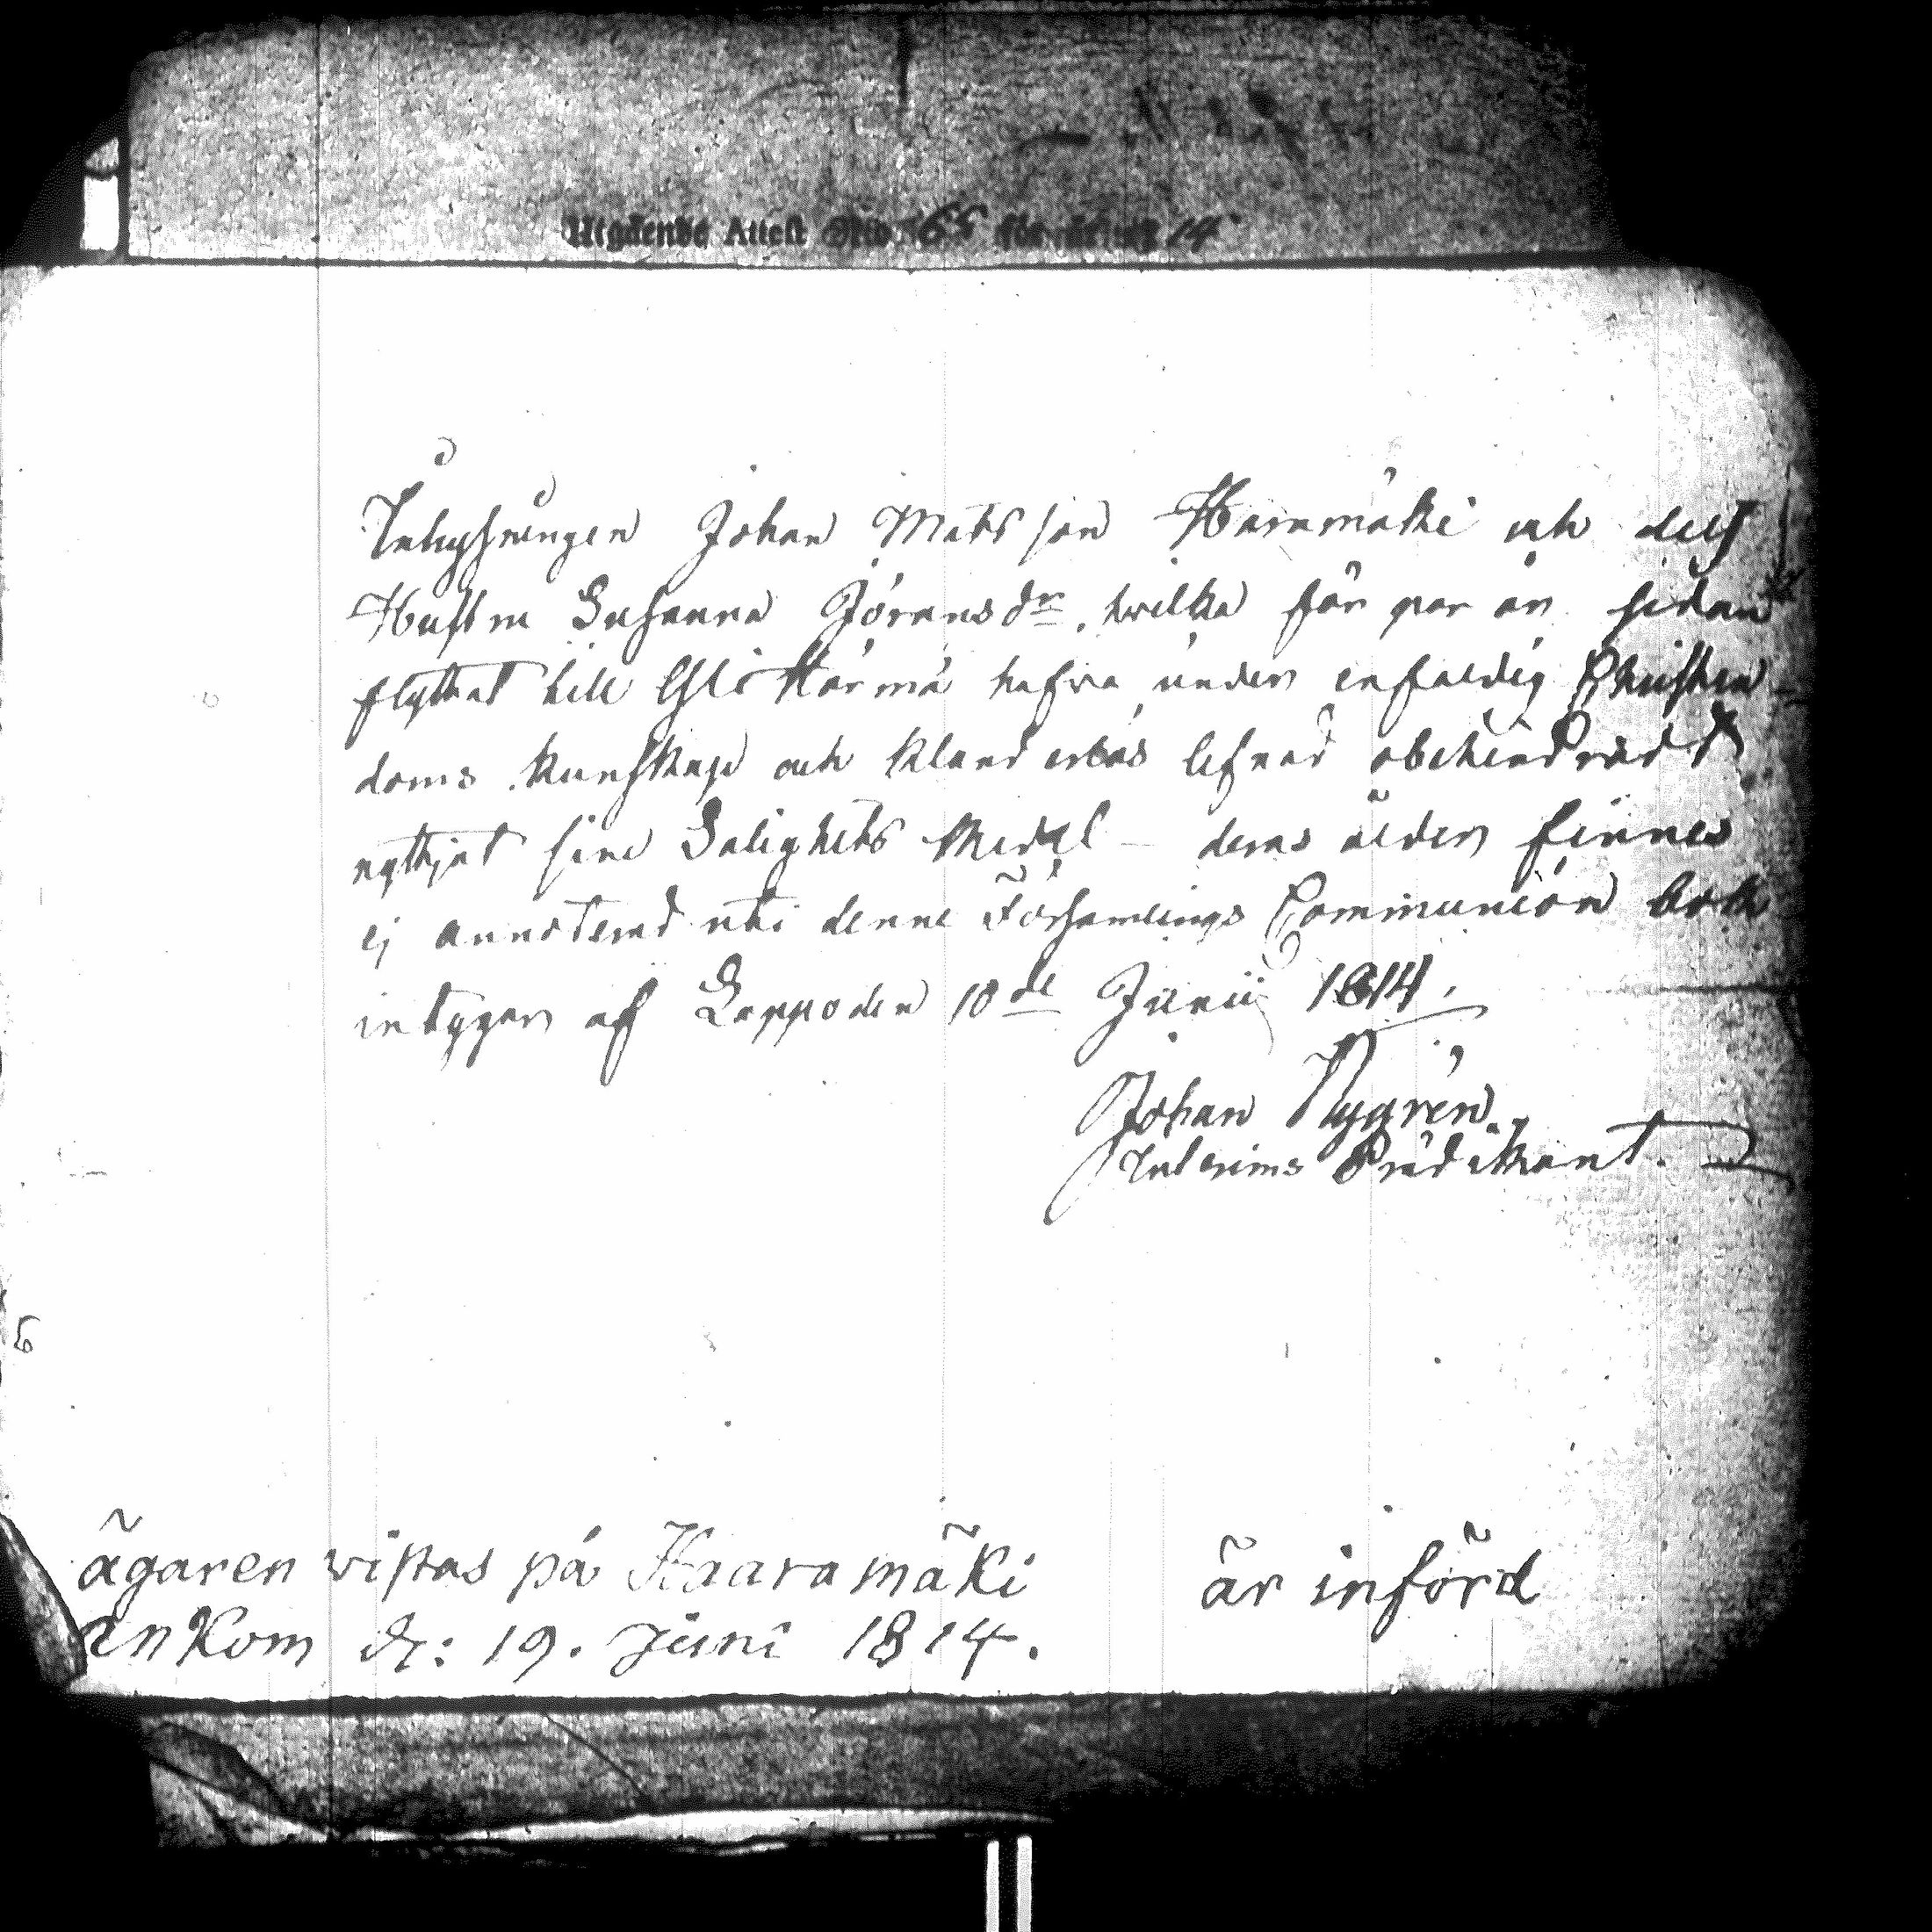 Utgående Attest No 65 för år 1814
Inhysingen Johan Matsson Haramäki och dess
Hustru Susanna Jöransdr, hwilka för par år sedan
flyttat till Ylikärmä hafva under enfaldig Christen
doms kunskap och klanderlös lefnad obehindradt
nyttjat sine Salighets Medel – deras ålder finnes
ej annoterad uti denne Församlings Communion bok
intygar af Lappo den 18de Junii 1814.
Johan Nygrén
Interims Prädikant.
ägaren vistas på Haaramäki är införd
ankom d: 19. Juni 1814.